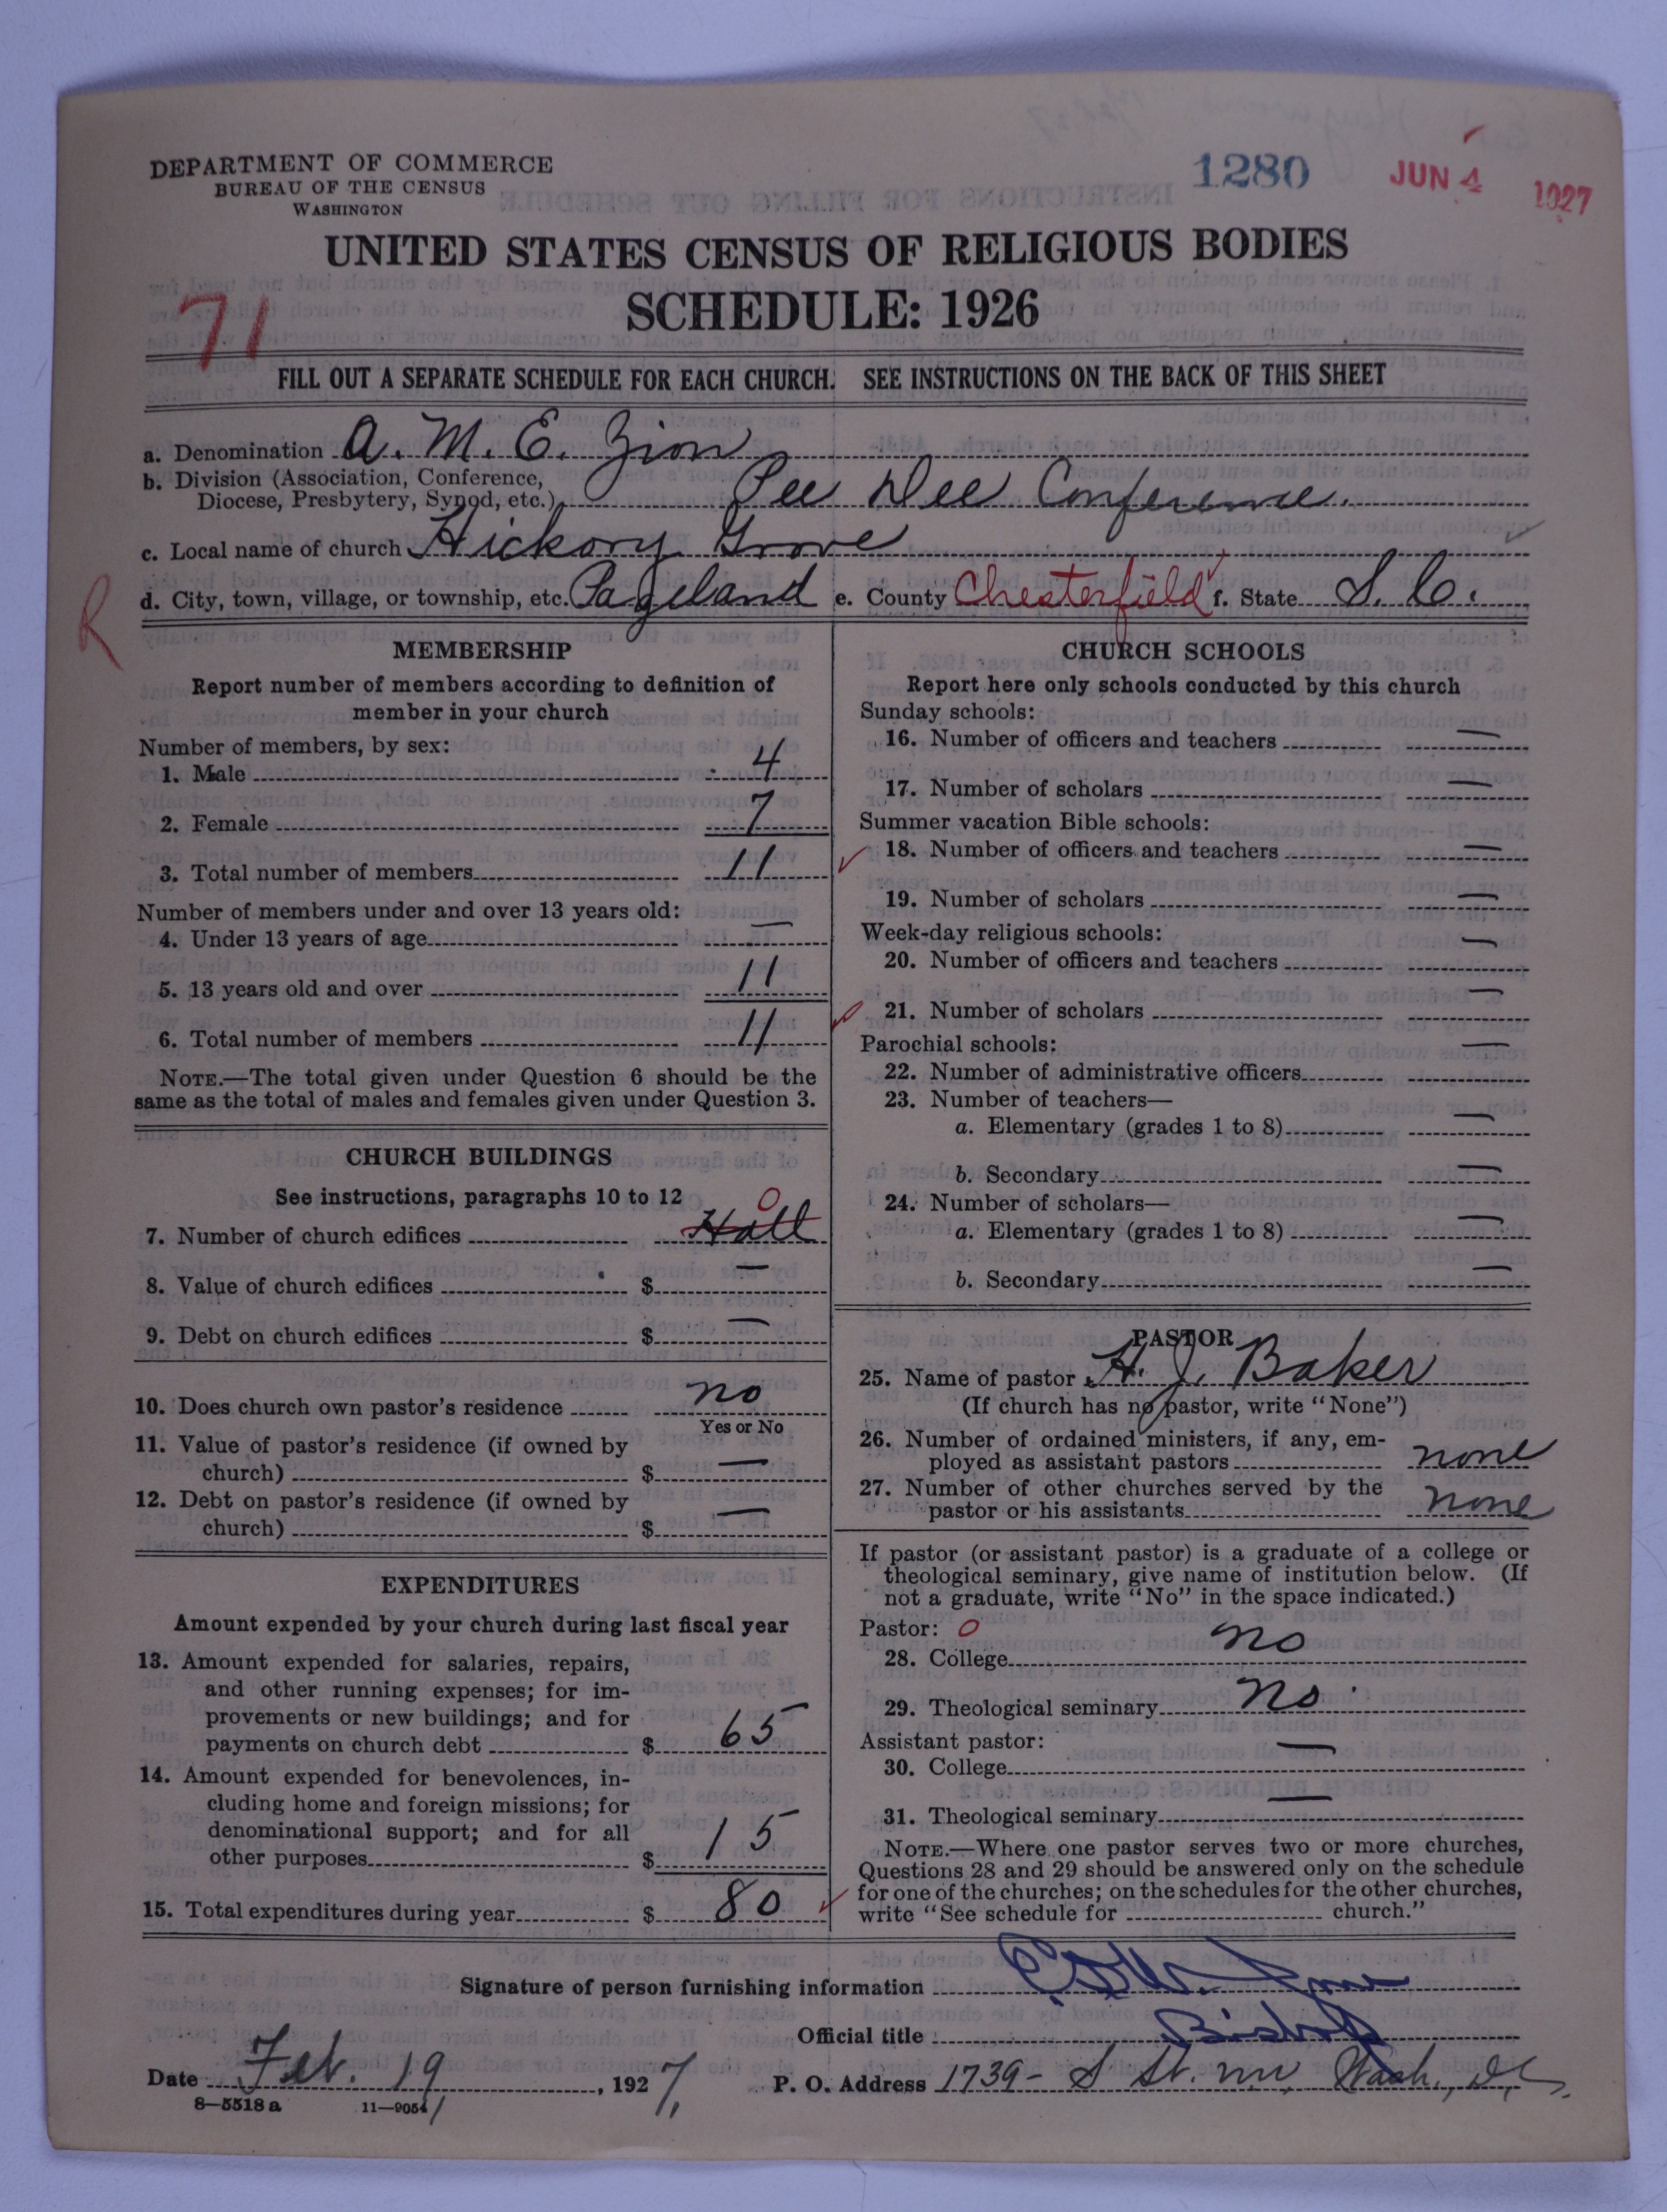 DEPARTMENT OF COMMERCE
BUREAU OF THE CENSUS
WASHINGTON
1280
JUN 4 1927
UNITED STATES CENSUS OF RELIGIOUS BODIES
SCHEDULE: 1926
71
FILL OUT A SEPARATE SCHEDULE FOR EACH CHURCH. SEE INSTRUCTIONS ON THE BACK OF THIS SHEET
a. Denomination A. M. E. Zion
b. Division (Association, Conference,
Diocese, Presbytery, Synod, etc.) Pee Dee Conference.
c. Local name of church Hickory Grove
R
d. City, town, village, or township, etc. Pageland e. County Chesterfield f. State S. C.
MEMBERSHIP
Report number of members according to definition of
member in your church
Number of members, by sex:
1. Male 4
2. Female 7
3. Total number of members 11
Number of members under and over 13 years old:
4. Under 13 years of age —
5. 13 years old and over 11
6. Total number of members 11
NOTE.—The total given under Question 6 should be the
same as the total of males and females given under Question 3.
CHURCH BUILDINGS
See instructions, paragraphs 10 to 12
0
7. Number of church edifices Hall
8. Value of church edifices $ —
9. Debt on church edifices $ —
10. Does church own pastor's residence no
Yes or No
11. Value of pastor's residence (if owned by
church) $ —
12. Debt on pastor's residence (if owned by
church) $ —
EXPENDITURES
Amount expended by your church during last fiscal year
13. Amount expended for salaries, repairs,
and other running expenses; for im-
provements or new buildings; and for
payments on church debt $ 65
14. Amount expended for benevolences, in-
cluding home and foreign missions; for
denominational support; and for all
other purposes $ 15
15. Total expenditures during year $ 80
CHURCH SCHOOLS
Report here only schools conducted by this church
Sunday schools:
16. Number of officers and teachers —
17. Number of scholars —
Summer vacation Bible schools:
18. Number of officers and teachers —
19. Number of scholars —
Week-day religious schools:
20. Number of officers and teachers —
21. Number of scholars —
Parochial schools:
22. Number of administrative officers —
23. Number of teachers—
a. Elementary (grades 1 to 8) —
b. Secondary —
24. Number of scholars—
a. Elementary (grades 1 to 8) —
b. Secondary —
PASTOR
25. Name of pastor H. J. Baker
(If church has no pastor, write "None")
26. Number of ordained ministers, if any, em-
ployed as assistant pastors none
27. Number of other churches served by the
pastor or his assistants none
If pastor (or assistant pastor) is a graduate of a college or
theological seminary, give name of institution below. (If
not a graduate, write "No" in the space indicated.)
Pastor: 0
28. College no
29. Theological seminary no.
Assistant pastor:
30. College —
31. Theological seminary —
NOTE.—Where one pastor serves two or more churches,
Questions 28 and 29 should be answered only on the schedule
for one of the churches; on the schedules for the other churches,
write "See schedule for church."
Signature of person furnishing information
Official title Bishop
Date Feb. 19, 1927. P. O. Address 1739- S St. nw, Wash., D.C.
8—5518 a 11—9051